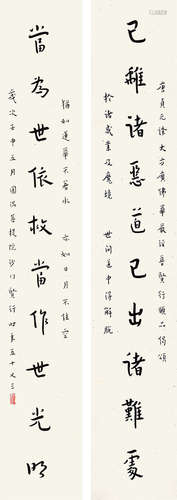 已離諸惡道已出諸難處
唐貞元譯大方廣佛華嚴經普賢行願品偈頌
於諸惑業及魔境 世間道中得解脫
當為世依救當作世光明
猶如蓮華不著水 亦如日月不住空
歲次壬申五月菩提院沙門賢行時年五十又三